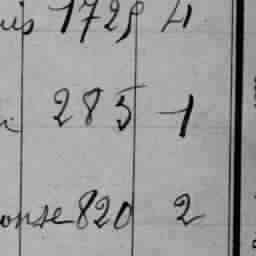 is 1725 4
285 1
onse 820 2